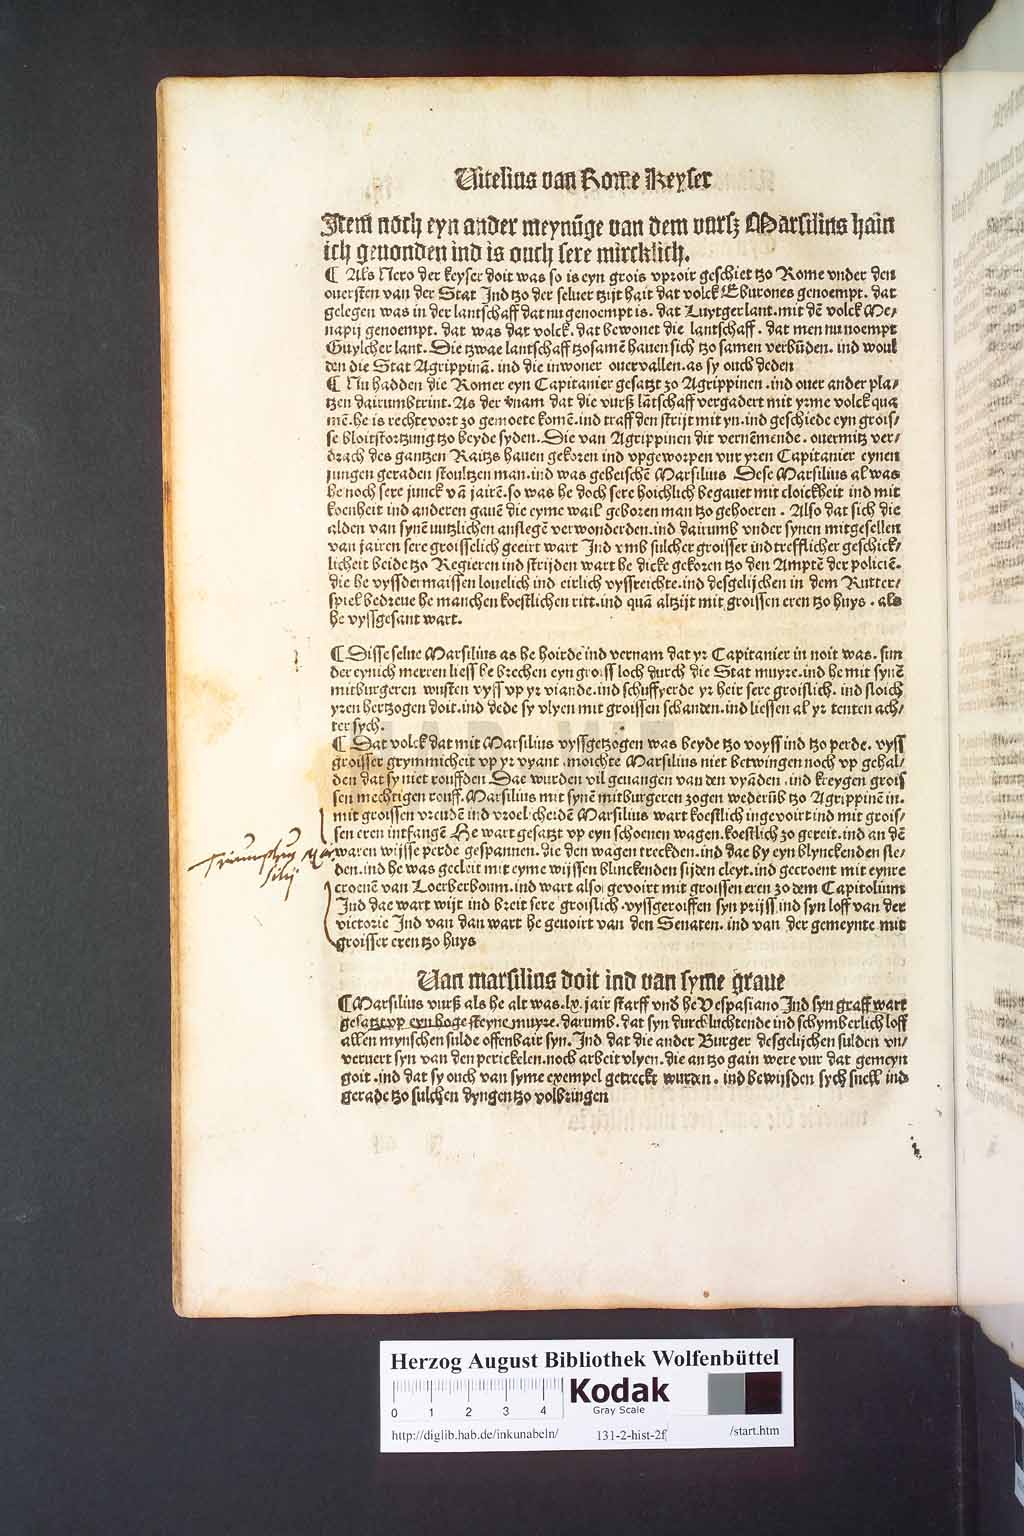 Vitelius van Rome Keyser
Item noch eyn ander meynūge van dem vursz Marsilius hain
ich geuonden ind is ouch sere mircklich.
¶ Als Nero der keyser doit was so is eyn grois vproir geschiet tzo Rome vnder den
ouersten van der Stat Ind tzo der seluer tzijt hait dat volck Eburones genoempt. dat
gelegen was in der lantschaff dat nu genoempt is. dat Luytger lant. mit dē volck Me⸗
napij genoempt. dat was dat volck. dat bewonet die lantschaff. dat men nu noempt
Guylcher lant. Die tzwae lantschaff tzosamē hauen sich tzo samen verbūden. ind woul
den die Stat Agrippinā. ind die inwoner ouervallen. as sy ouch deden
¶ Nu hadden die Romer eyn Capitanier gesatzt zo Agrippinen. ind ouer ander pla⸗
tzen dairumbtrint. As der vnam dat die vurß lātschaff vergadert mit yrme volck quā
mē. he is rechtevort zo gemoete komē. ind traff den strijt mit yn. ind geschiede eyn grois⸗
se bloitstortzung tzo beyde syden. Die van Agrippinen dit vernēmende. ouermitz ver⸗
drach des gantzen Raitzs hauen gekoren ind vpgeworpen vur yren Capitanier eynen
jungen geraden stoultzen man. ind was geheischē Marsilius Dese Marsilius al was
he noch sere junck vā jairē. so was he doch sere hoichlich begauet mit cloickheit ind mit
koenheit ind anderen gauē die eyme wail geboren man tzo gehoeren. Also dat sich die
alden van synē nutzlichen anslegē verwonderden. ind dairumb vnder synen mitgesellen
van jairen sere groisselich geeirt wart Ind vmb sulcher groisser ind trefflicher geschick⸗
licheit beide tzo Regieren ind strijden wart he dicke gekoren tzo den Amptē der policiē.
die he vyssdermaissen louelich ind eirlich vyssreichte. ind desgelijchen in dem Rutter⸗
spiel bedreue he manchen koestlichen ritt. ind quā altzijt mit groissen eren tzo huys. als
he vyssgesant wart.
¶ Disse selue Marsilius as he hoirde ind vernam dat yr Capitanier in noit was. sun
der eynich merren liess he brechen eyn groiss loch durch die Stat muyre. ind he mit synē
mitburgeren wusten vyss vp yr viande. ind schuffyerde yr heir sere groislich. ind sloich
yren hertzogen doit. ind dede sy vlyen mit groissen schanden. ind liessen al yr tenten ach⸗
ter sych.
¶ Dat volck dat mit Marsilius vyssgetzogen was beyde tzo voyss ind tzo perde. vyss
groisser grymmicheit vp yr vyant. moichte Marsilius niet betwingen noch vp gehal⸗
den dat sy niet rouffden. Dae wurden vil geuangen van den vyāden. ind kreygen grois
sen mechtigen rouff. Marsilius mit synē mitburgeren zogen wederūb tzo Agrippinē in.
mit groissen vreudē ind vroelicheidē Marsilius wart koestlich ingevoirt ind mit grois⸗
sen eren intfangē He wart gesatzt vp eyn schoenen wagen. koestlich zo gereit. ind an dē
Triumphus Mar
waren wijsse perde gespannen. die den wagen treckden. ind dae by eyn blynckenden sie⸗
silij
den. ind he was gecleit mit eyme wijssen blinckenden sijden cleyt. ind gecroent mit eynre
croenē van Loerberboum. ind wart also gevoirt mit groissen eren zo dem Capitolium
Ind dae wart wijt ind breit sere groislich. vyssgeroiffen syn prijss. ind syn loff van der
victorie Ind van dan wart he geuoirt van den Senaten. ind van der gemeynte mit
groisser eren tzo huys
Van marsilius doit ind van syme graue
¶ Marsilius vurß als he alt was. lv. jair starff vnd he Vespasiano Ind syn graff wart
gesatzt vp eyn hoge steyne muyre. darumb. dat syn durchluchtende ind schymberlich loff
allen mynschen sulde offenbair syn. Ind dat die ander Burger desgelijchen sulden vn⸗
veruert syn van den perickelen. noch arbeit vlyen. die an tzo gain were vur dat gemeyn
goit. ind dat sy ouch van syme exempel getreckt wurden. ind bewijsden sych snell ind
gerade tzo sulchen dyngen tzo volbringen
Herzog August Bibliothek Wolfenbüttel
0 1 2 3 4
Kodak
Gray Scale
http://diglib.hab.de/inkunabeln/ 131-2-hist-2f /start.htm